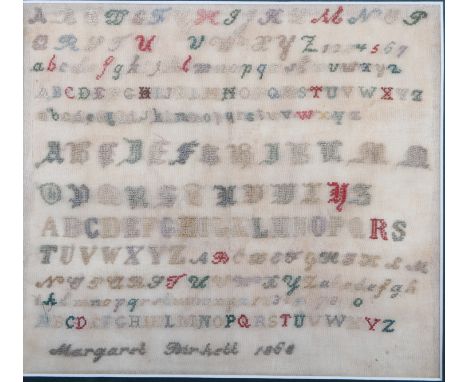 A B C D E F G H I J K L M N O P
Q R S T U V W X Y Z 1 2 3 4 5 6 7
a b c d e f g h i j k l m n o p q r s t u v w x y z
A B C D E F G H I J K L M N O P Q R S T U V W X Y Z
a b c d e f g h i j k l m n o p q r s t u v w x y z
A B C D E F G H I J K L M
O P Q R S T U V W X Y Z
A B C D E F G H I J K L M N O P Q R S
T U V W X Y Z A B C D E F G H I K L M
N O P Q R S T U V W X Y Z a b c d e f g h
k l m n o p q r s t u v w
A B C D E F G H I J K L M N O P Q R S T U V W X Y Z
Margaret Birkett 1868